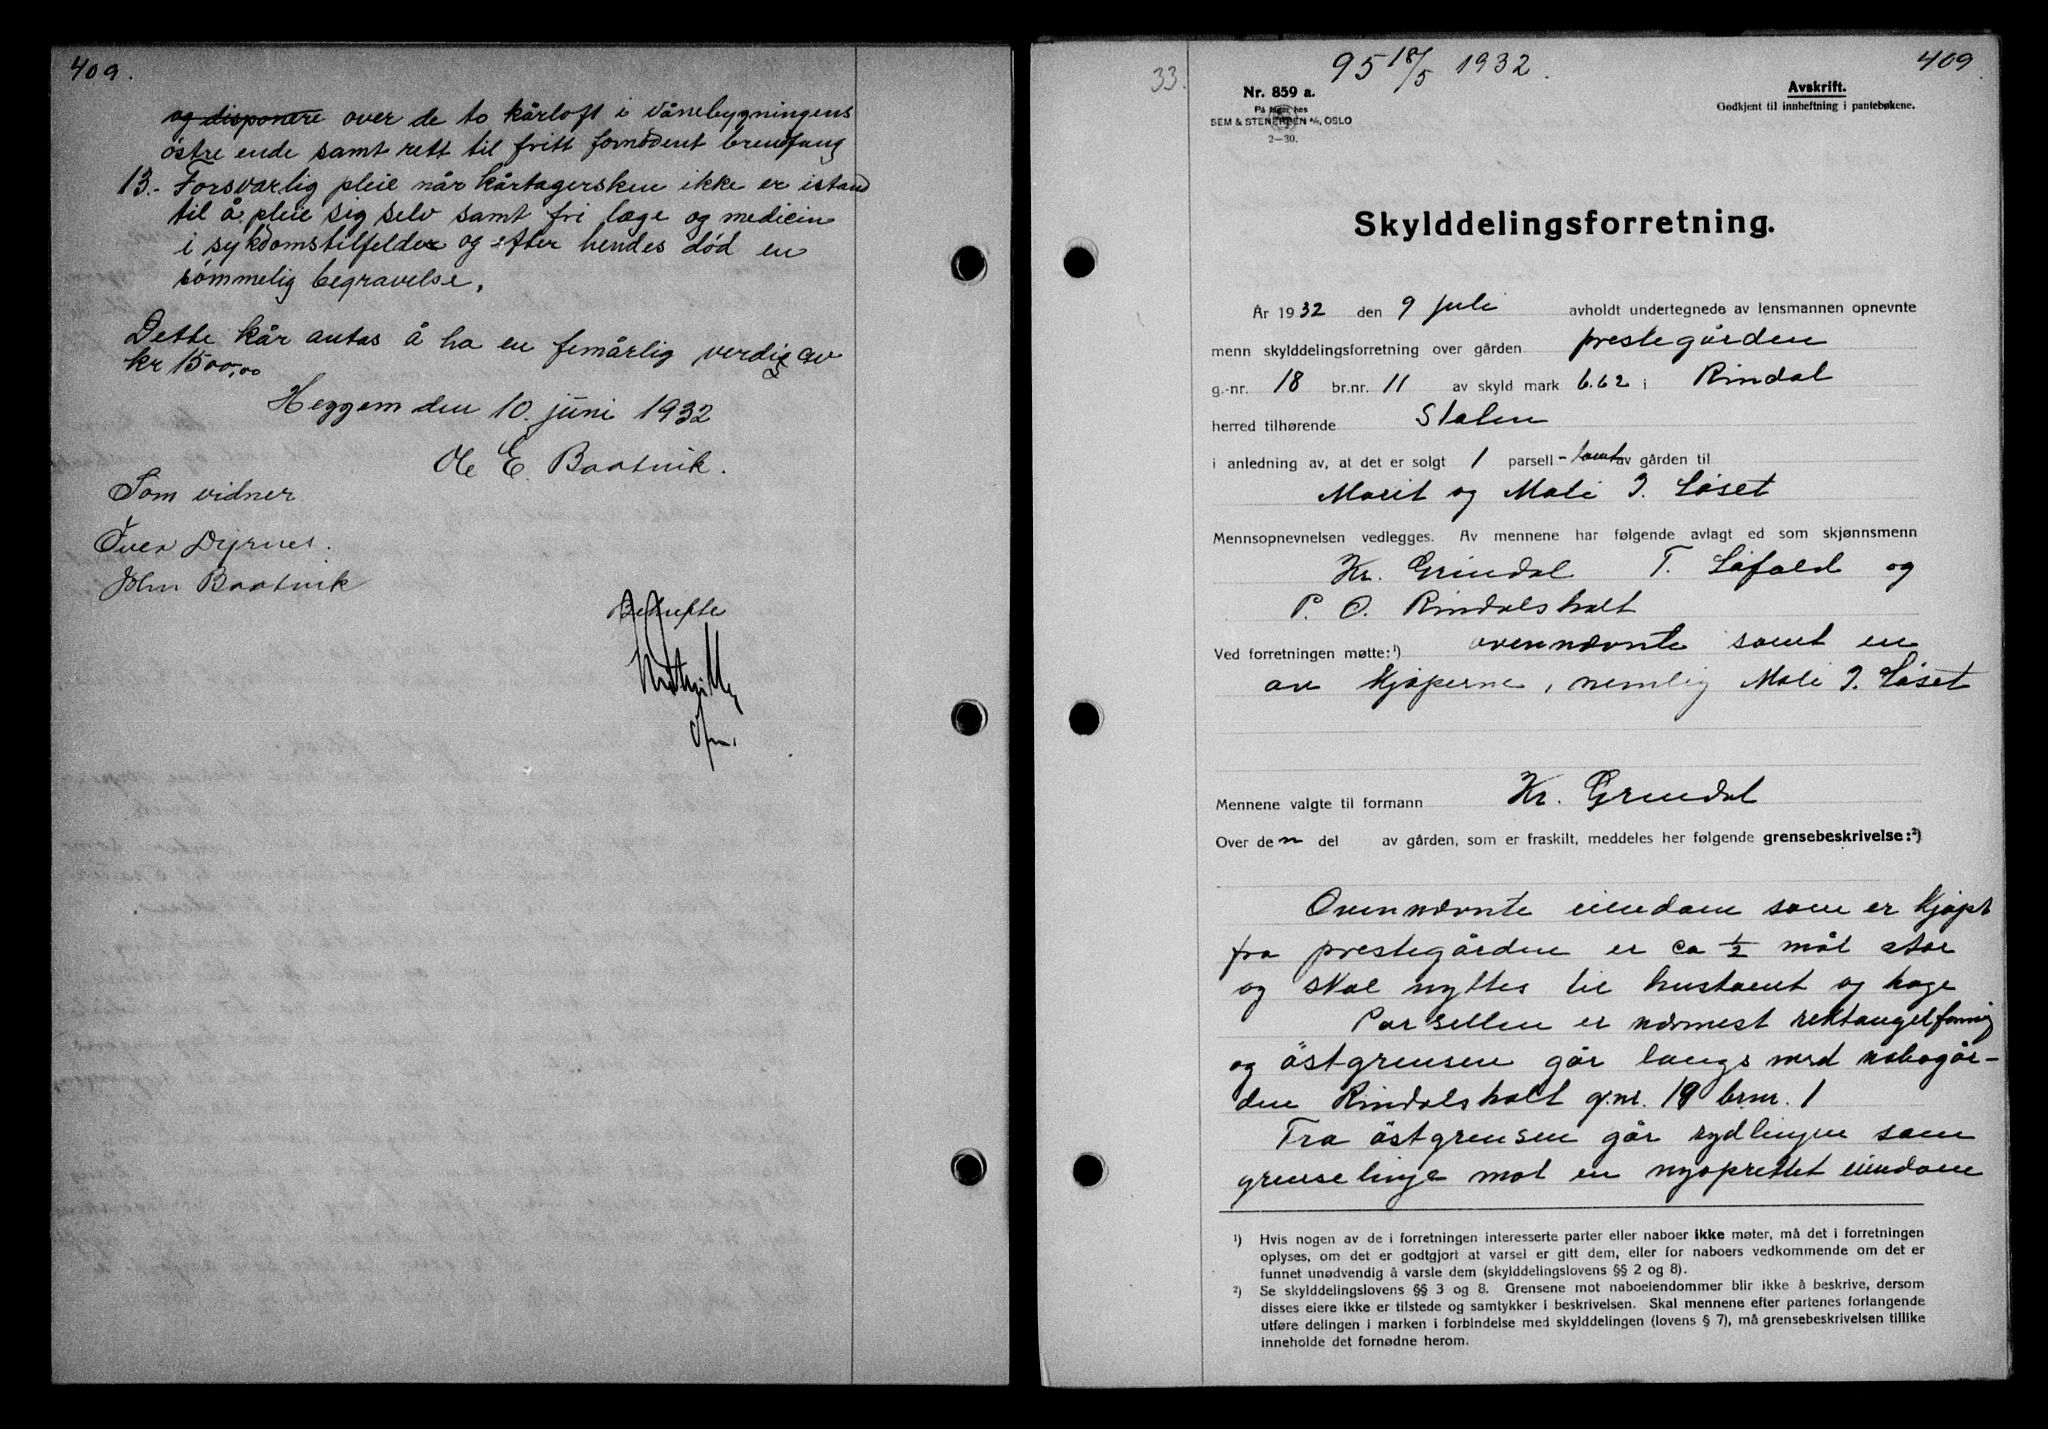 409.
og disponere over de to kårloft i vånebygningens
östre ende samt rett til fritt fornödent brenfang
13.- Forsvarlig pleie når kårtagersken ikke er istand
til å pleie sig selv samt fri læge og medicin
i sykdomstilfelder og efter hendes död en
sömmelig begravelse.
Dette kår antas å ha en femårlig verdig av
kr 1500,00
Heggem den 10. juni 1932
Ole E. Baatvik.
Som vidner
Sven Dyrnes.
John Baatvik
Bekrefte
33.
95 18/5 1932.
409
Nr. 859 a.
På lager hos
SEM & STENERSEN A/S, OSLO
2—30.
Avskrift.
Godkjent til innheftning i pantebøkene.
Skylddelingsforretning.
År 1932 den 9 juli avholdt undertegnede av lensmannen opnevnte
menn skylddelingsforretning over gården prestegården
g.-nr. 18 br.nr. 11 av skyld mark 6.62 i Rindal
herred tilhørende Staten
i anledning av, at det er solgt 1 parsell - tomt av gården til
Marit og Mali I. Løset
Mennsopnevnelsen vedlegges. Av mennene har følgende avlagt ed som skjønnsmenn
Kr. Grindal T. Løfald og
P. O. Rindalsholt
Ved forretningen møtte:¹) ovennævnte samt en
av kjøperne, nemlig Mali I. Løset
Mennene valgte til formann Kr. Grindal
Over den del av gården, som er fraskilt, meddeles her følgende grensebeskrivelse:²)
Ovennævnte eiendom som er kjøpt
fra prestegården er ca ½ mål stor
og skal nyttes til hustomt og hage
Parsellen er nærmest rektangelformig
og östgrensen går langs med nabogår-
den Rindalsholt g.nr. 19 br.nr. 1
Fra östgrensen går sydlinjen som
grenselinje mot en nyoprettet eiendom
¹) Hvis nogen av de i forretningen interesserte parter eller naboer ikke møter, må det i forretningen
oplyses, om det er godtgjort at varsel er gitt dem, eller for naboers vedkommende om det er
funnet unødvendig å varsle dem (skylddelingslovens §§ 2 og 8).
²) Se skylddelingslovens §§ 3 og 8. Grensene mot naboeiendommer blir ikke å beskrive, dersom
disses eiere ikke er tilstede og samtykker i beskrivelsen. Skal mennene efter partenes forlangende
utføre delingen i marken i forbindelse med skylddelingen (lovens § 7), må grensebeskrivelsen tillike
inneholde det fornødne herom.